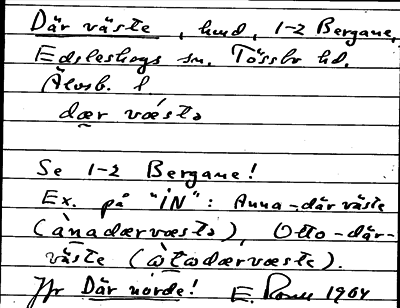 Där väste, hmd, 1-2 Bergane,
Edsleskogs sn. Tössbo hd.
Älvsb. l
dær vǽstə
Se 1-2 Bergane!
Ex. på "IN": Anna-där väste
(ànadærvæstə), Otto-där-
väste (òtodærvæste).
Jfr Där norde! E. 1964